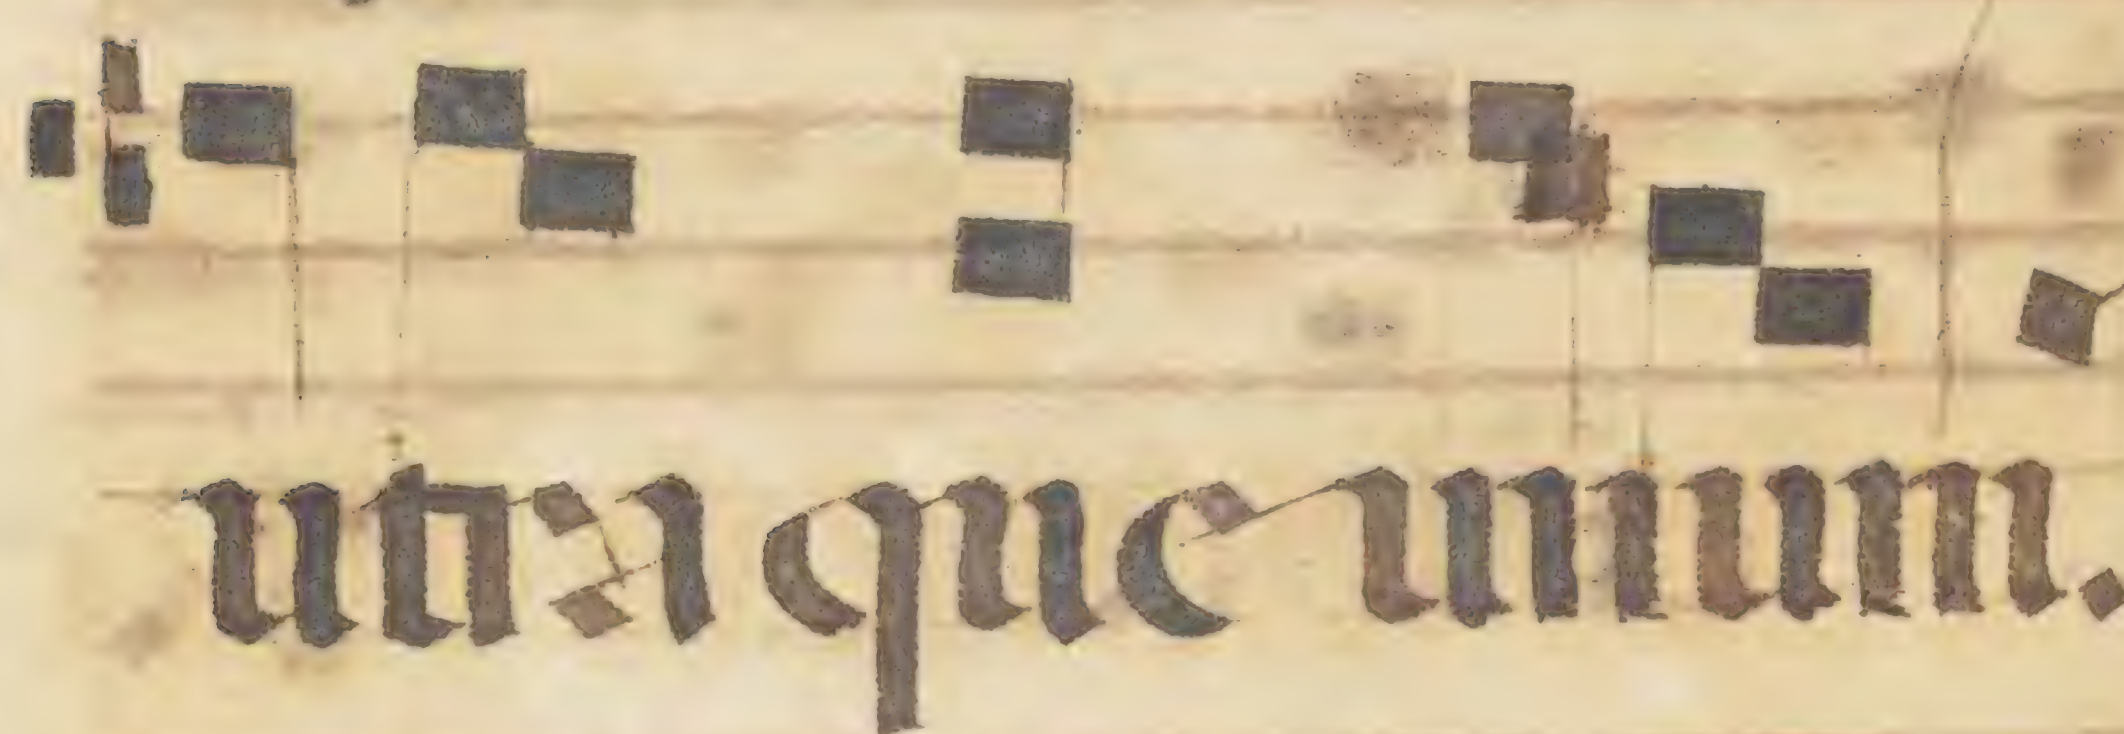 utraque unum.